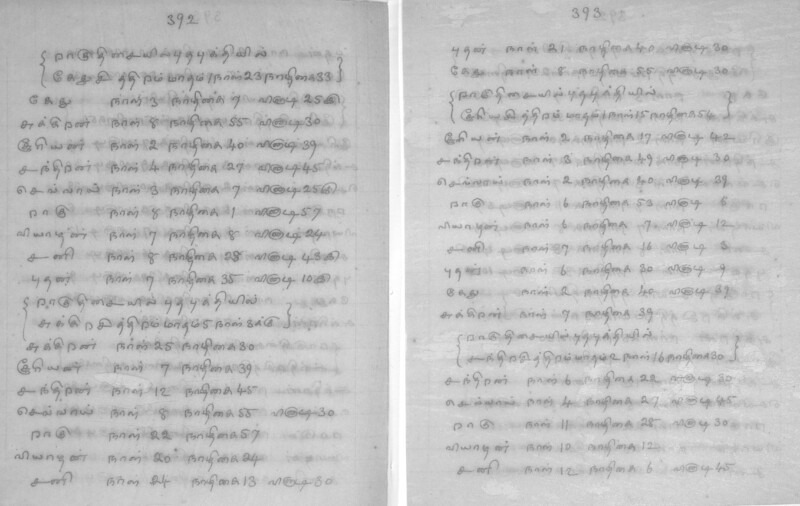 392
ராகுதிசையில் புதபுக்தியில்
கேது சித்திரம் மாதம் 1 நாள் 23 நாழிகை 33
கேது நாள் 3 நாழிகை 7 வினாடி 25
சுக்கிரன் நாள் 8 நாழிகை 55 வினாடி 30
சூரியன் நாள் 2 நாழிகை 40 வினாடி 39
சந்திரன் நாள் 4 நாழிகை 27 வினாடி 45
செவ்வாய் நாள் 3 நாழிகை 7 வினாடி 25
ராகு நாள் 8 நாழிகை 1 வினாடி 57
வியாழன் நாள் 7 நாழிகை 8 வினாடி 24
சனி நாள் 8 நாழிகை 28 வினாடி 43
புதன் நாள் 7 நாழிகை 35 வினாடி 10
ராகுதிசையில் புதபுக்தியில்
சுக்கிர சித்திரம் மாதம் 5 நாள் 3
சுக்கிரன் நாள் 25 நாழிகை 30
சூரியன் நாள் 7 நாழிகை 39
சந்திரன் நாள் 12 நாழிகை 45
செவ்வாய் நாள் 8 நாழிகை 55 வினாடி 30
ராகு நாள் 22 நாழிகை 57
வியாழன் நாள் 20 நாழிகை 24
சனி நாள் 24 நாழிகை 13 வினாடி 30
393
புதன் நாள் 21 நாழிகை 40 வினாடி 30
கேது நாள் 8 நாழிகை 55 வினாடி 30
ராகுதிசையில் புதபுக்தியில்
சூரிய சித்திரம் மாதம் 1 நாள் 15 நாழிகை 54
சூரியன் நாள் 2 நாழிகை 17 வினாடி 42
சந்திரன் நாள் 3 நாழிகை 49 வினாடி 30
செவ்வாய் நாள் 2 நாழிகை 40 வினாடி 39
ராகு நாள் 6 நாழிகை 53 வினாடி 6
வியாழன் நாள் 6 நாழிகை 7 வினாடி 12
சனி நாள் 7 நாழிகை 16 வினாடி 3
புதன் நாள் 6 நாழிகை 30 வினாடி 9
கேது நாள் 2 நாழிகை 40 வினாடி 39
சுக்கிரன் நாள் 7 நாழிகை 39
ராகுதிசையில் புதபுக்தியில்
சந்திர சித்திரம் மாதம் 2 நாள் 16 நாழிகை 30
சந்திரன் நாள் 6 நாழிகை 22 வினாடி 30
செவ்வாய் நாள் 4 நாழிகை 27 வினாடி 45
ராகு நாள் 11 நாழிகை 28 வினாடி 30
வியாழன் நாள் 10 நாழிகை 12
சனி நாள் 12 நாழிகை 6 வினாடி 45